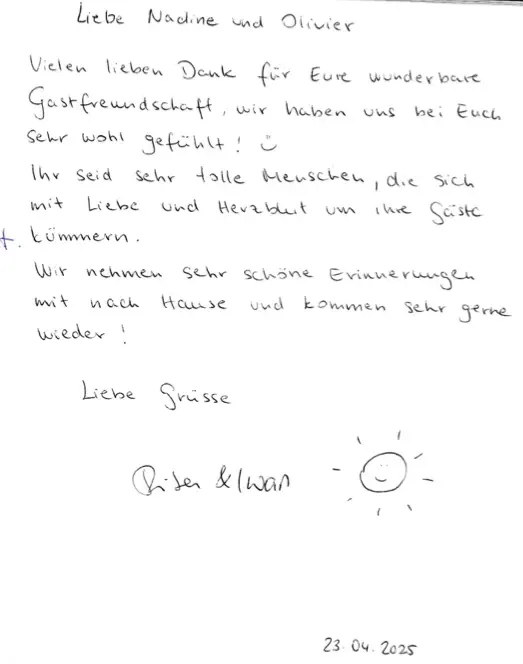 Liebe Nadine und Olivier
Vielen lieben Dank für Eure wunderbare
Gastfreundschaft, wir haben uns bei Euch
sehr wohl gefühlt!
Ihr seid sehr tolle Menschen, die sich
mit Liebe und Herzblut um ihre Gäste
kümmern.
Wir nehmen sehr schöne Erinnerungen
mit nach Hause und kommen sehr gerne
wieder!
Liebe Grüsse
& Iwan
23.04.2025